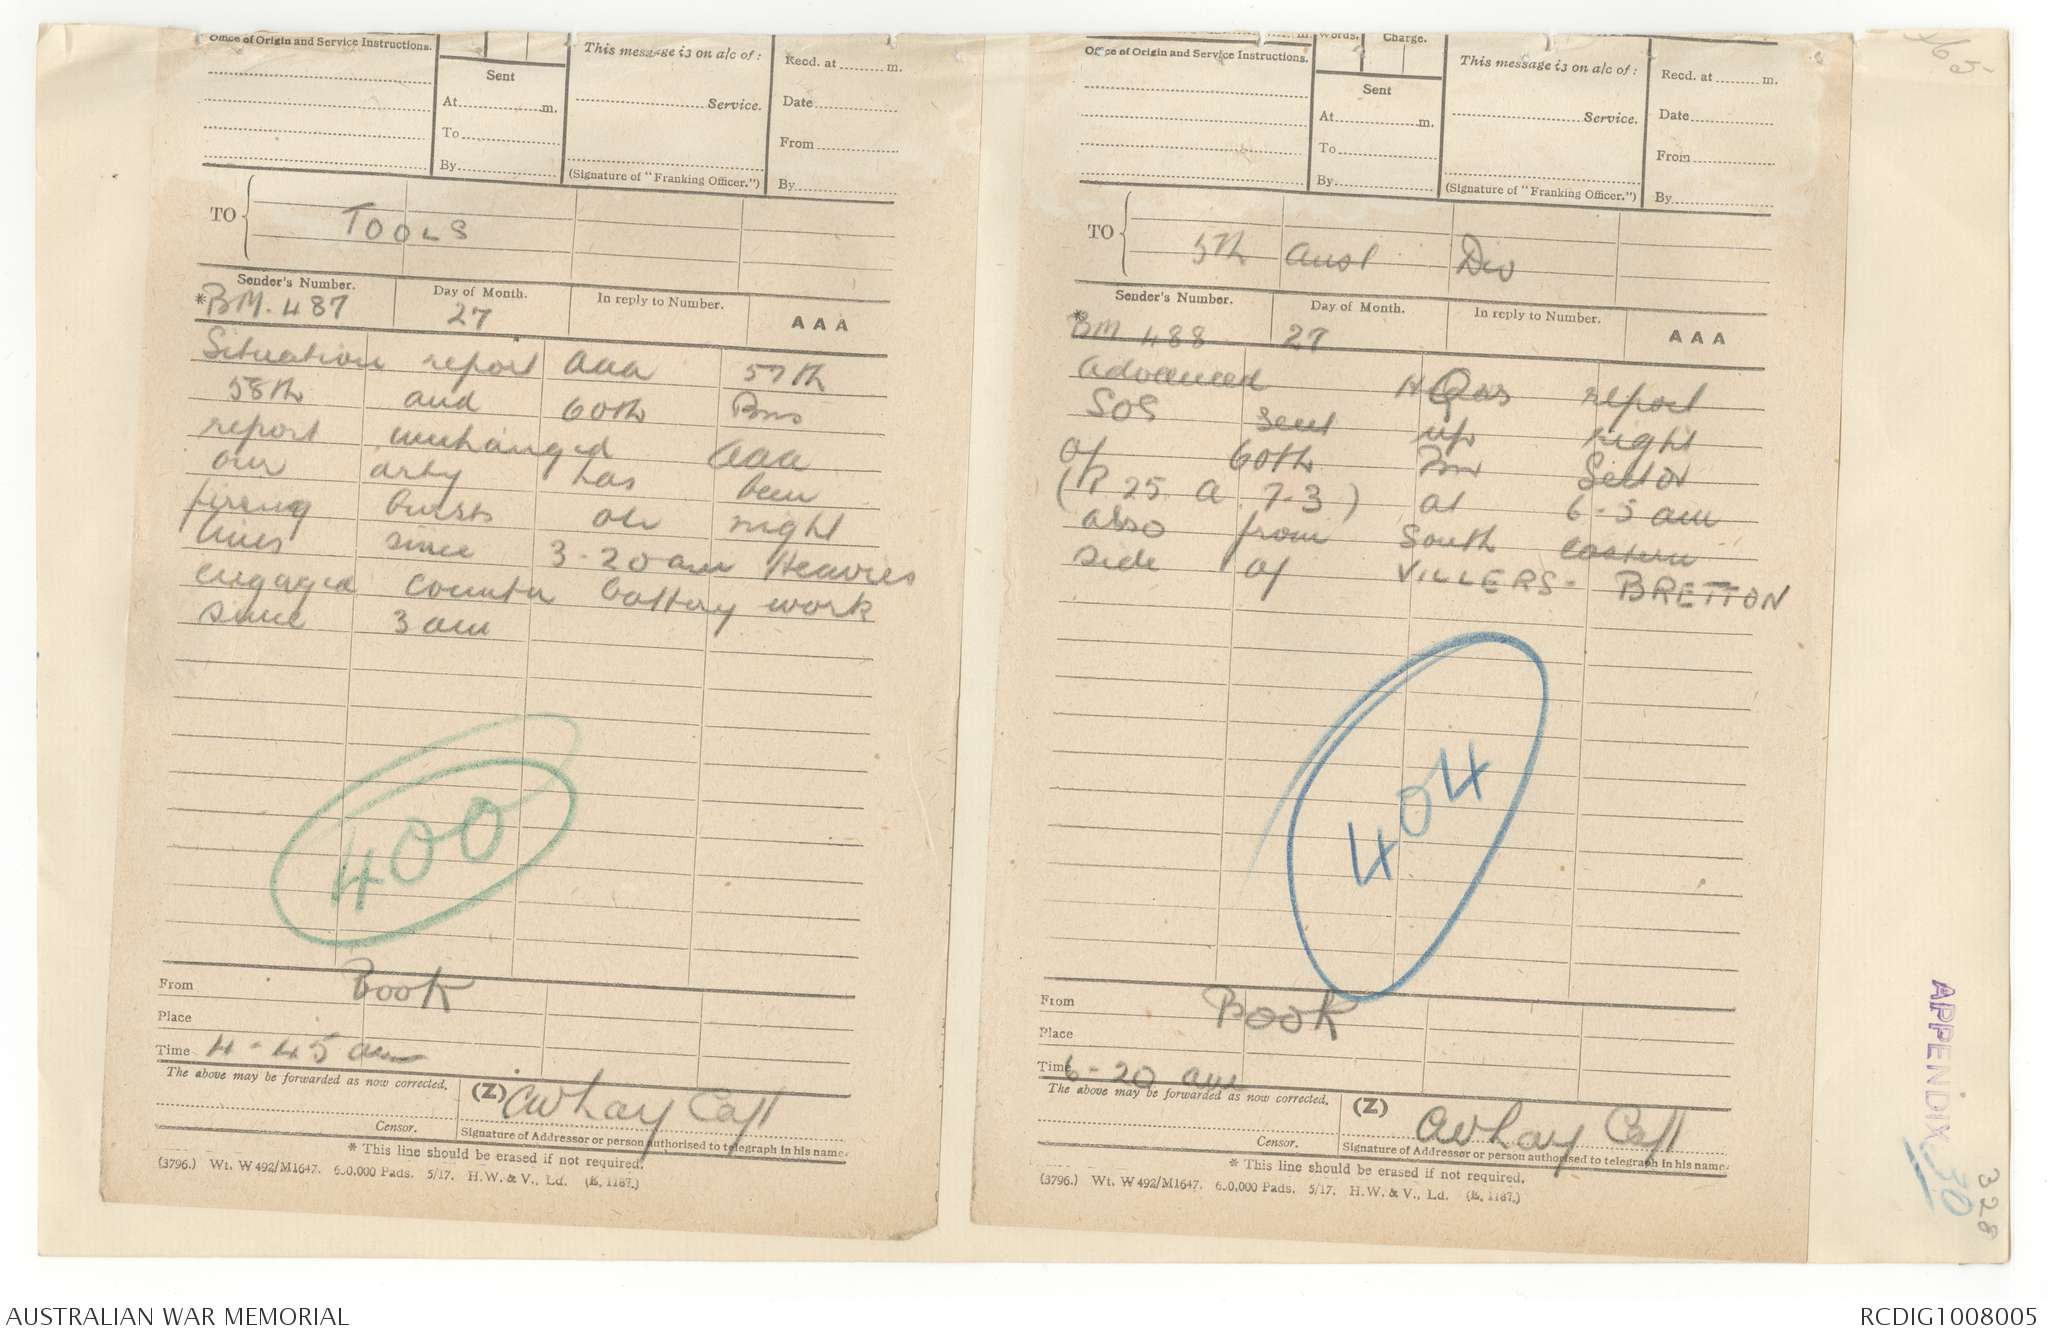 Office of Origin and Service Instructions.
Sent
At ............ m.
To ............
By ............
This message is on a/c of :
............ Service.
(Signature of "Franking Officer.")
Recd. at ........ m.
Date ............
From ............
By ............
TO
TOOLS
Sender's Number.
Day of Month.
In reply to Number.
AAA
*BM. 487
27
Situation report aaa 57th
58th and 60th Bns
report unchanged aaa
our arty has been
firing bursts on night
lines since 3-20 am Heavies
engaged counter battery work
since 3 am
400
From Book
Place
Time 4-45 am
The above may be forwarded as now corrected.
(Z)
Hay Capt
Censor.
Signature of Addressor or person authorised to telegraph in his name.
* This line should be erased if not required.
(3796.) Wt. W492/M1647. 6.0,000 Pads. 5/17. H.W. & V., Ld. (E. 1187.)
Words.
Charge.
Office of Origin and Service Instructions.
Sent
At ............ m.
To ............
By ............
This message is on a/c of :
............ Service.
(Signature of "Franking Officer.")
Recd. at ........ m.
Date ............
From ............
By ............
TO
5th Aust Div
Sender's Number.
Day of Month.
In reply to Number.
AAA
*BM 488
27
Advanced HQrs report
SOS sent up right
of 60th Bn Sector
(P 25 A 7-3) at 6-5 am
also from South eastern
side of VILLERS-BRETTON
404
From Book
Place
Time 6-20 am
The above may be forwarded as now corrected.
(Z)
Hay Capt
Censor.
Signature of Addressor or person authorised to telegraph in his name.
* This line should be erased if not required.
(3796.) Wt. W492/M1647. 6.0,000 Pads. 5/17. H.W. & V., Ld. (E. 1187.)
APPENDIX 30
328
AUSTRALIAN WAR MEMORIAL
RCDIG1008005